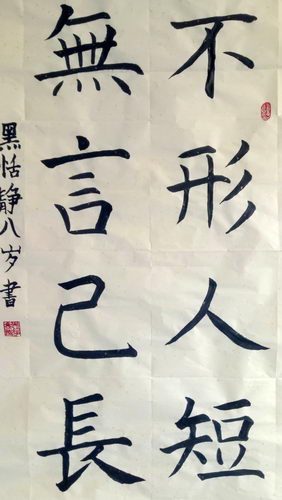 不形人短
無言己長
黑恬静八岁書